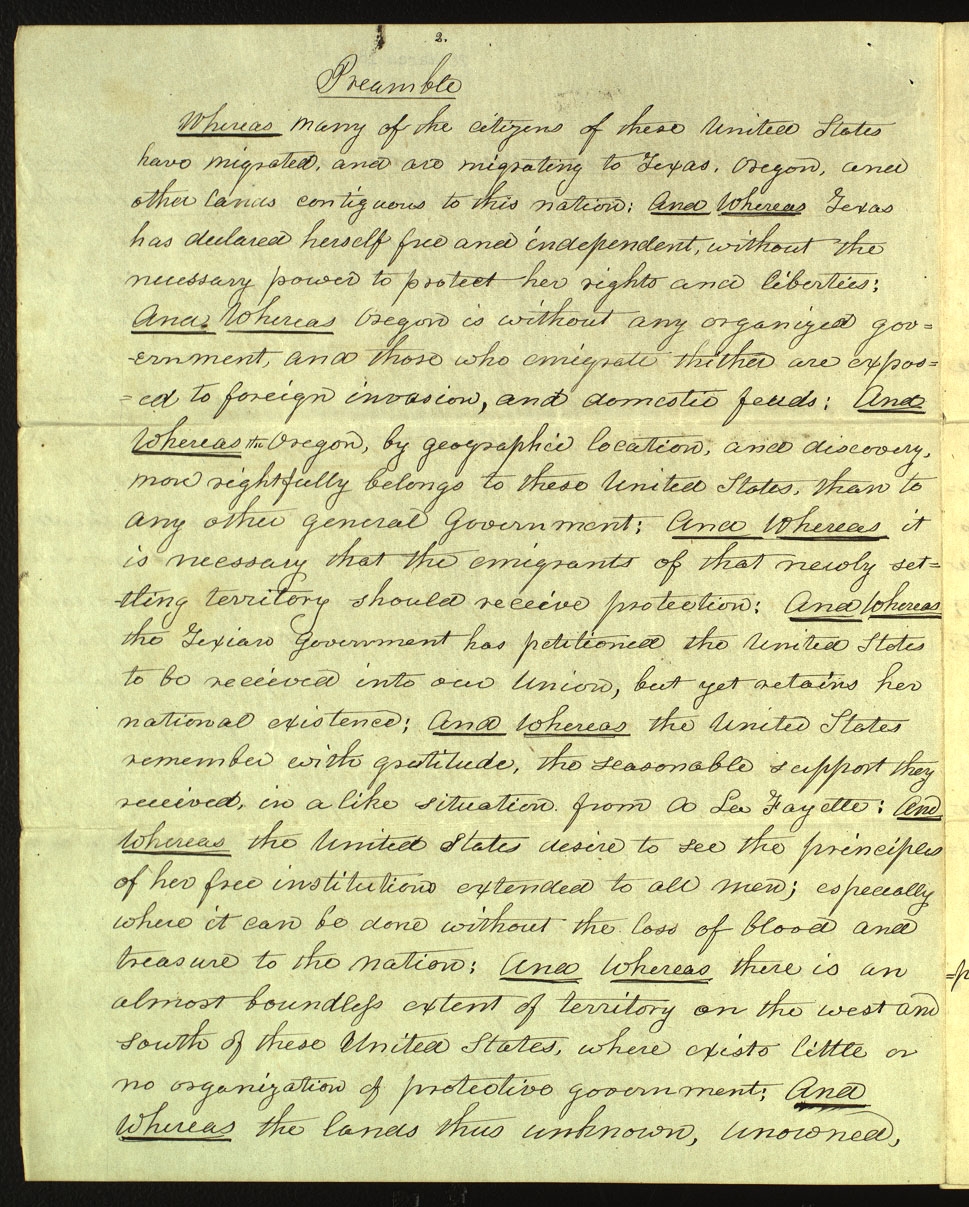 2.
Preamble
Whereas many of the citizens of these United States
have migrated, and are migrating to Texas, Oregon, and
other lands contiguous to this nation; And Whereas Texas
has declared herself free and independent, without the
necessary power to protect her rights and liberties;
And Whereas Oregon is without any organized gov=
-ernment, and those who emigrate thither are expos=
=ed to foreign invasion, and domestic feuds; And
Whereas the Oregon, by geographic location, and discovery,
more rightfully belongs to these United States, than to
any other general Government; And Whereas it
is necessary that the emigrants of that newly set=
-tling territory should receive protection; And Whereas
the Texian Government has petitioned the United States
to be received into our Union, but yet retains her
national existence; And Whereas the United States
remember with gratitude, the seasonable support they
received, in a like situation from a La Fayette; And
Whereas the United States desire to see the principles
of her free institutions extended to all men; especially
where it can be done without the loss of blood and
treasure to the nation; And Whereas there is an
almost boundless extent of territory on the west and
south of these United States, where exists little or
no organization of protective government; And
Whereas the lands thus unknown, unowned,